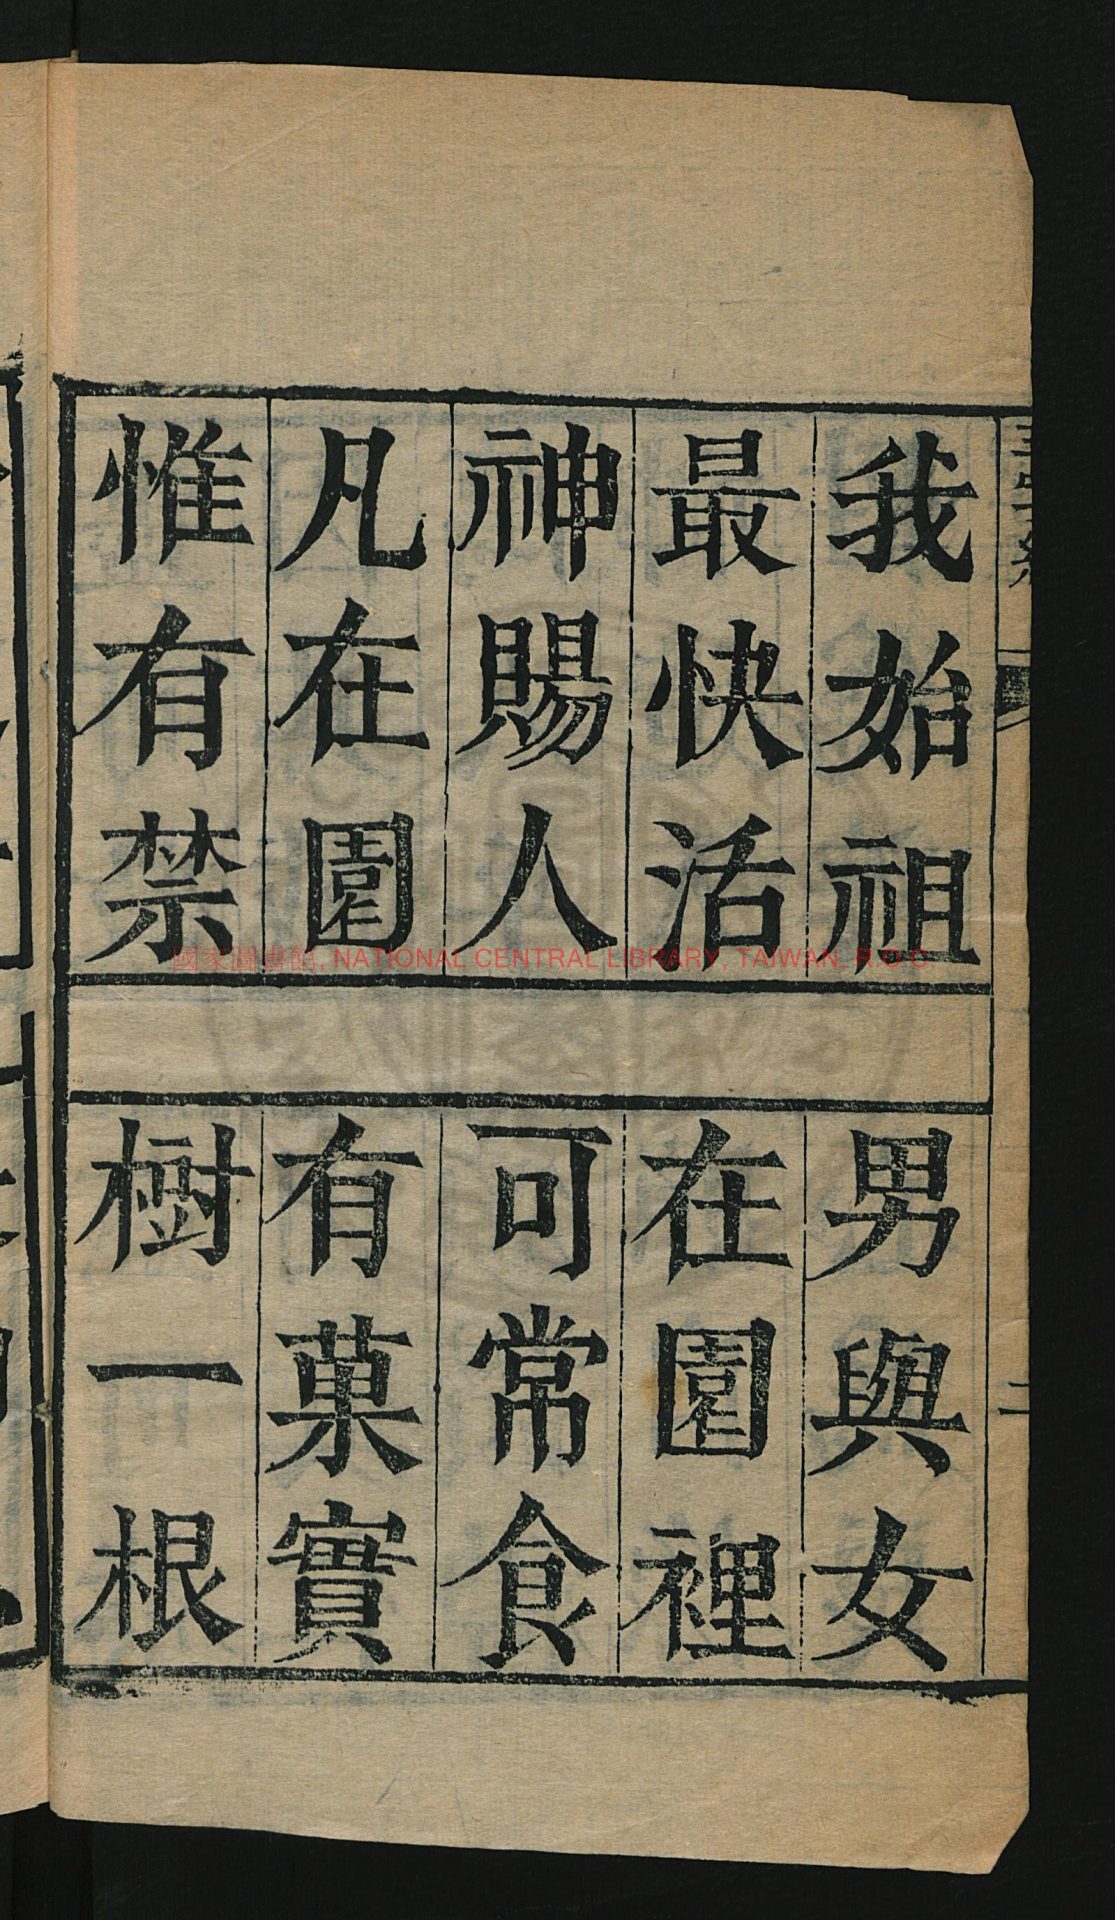 我始祖
男與女
最快活
在園裡
神賜人
可常食
凡在園
有菓實
惟有禁
樹一根
二
國家圖書館, NATIONAL CENTRAL LIBRARY, TAIWAN, R.O.C